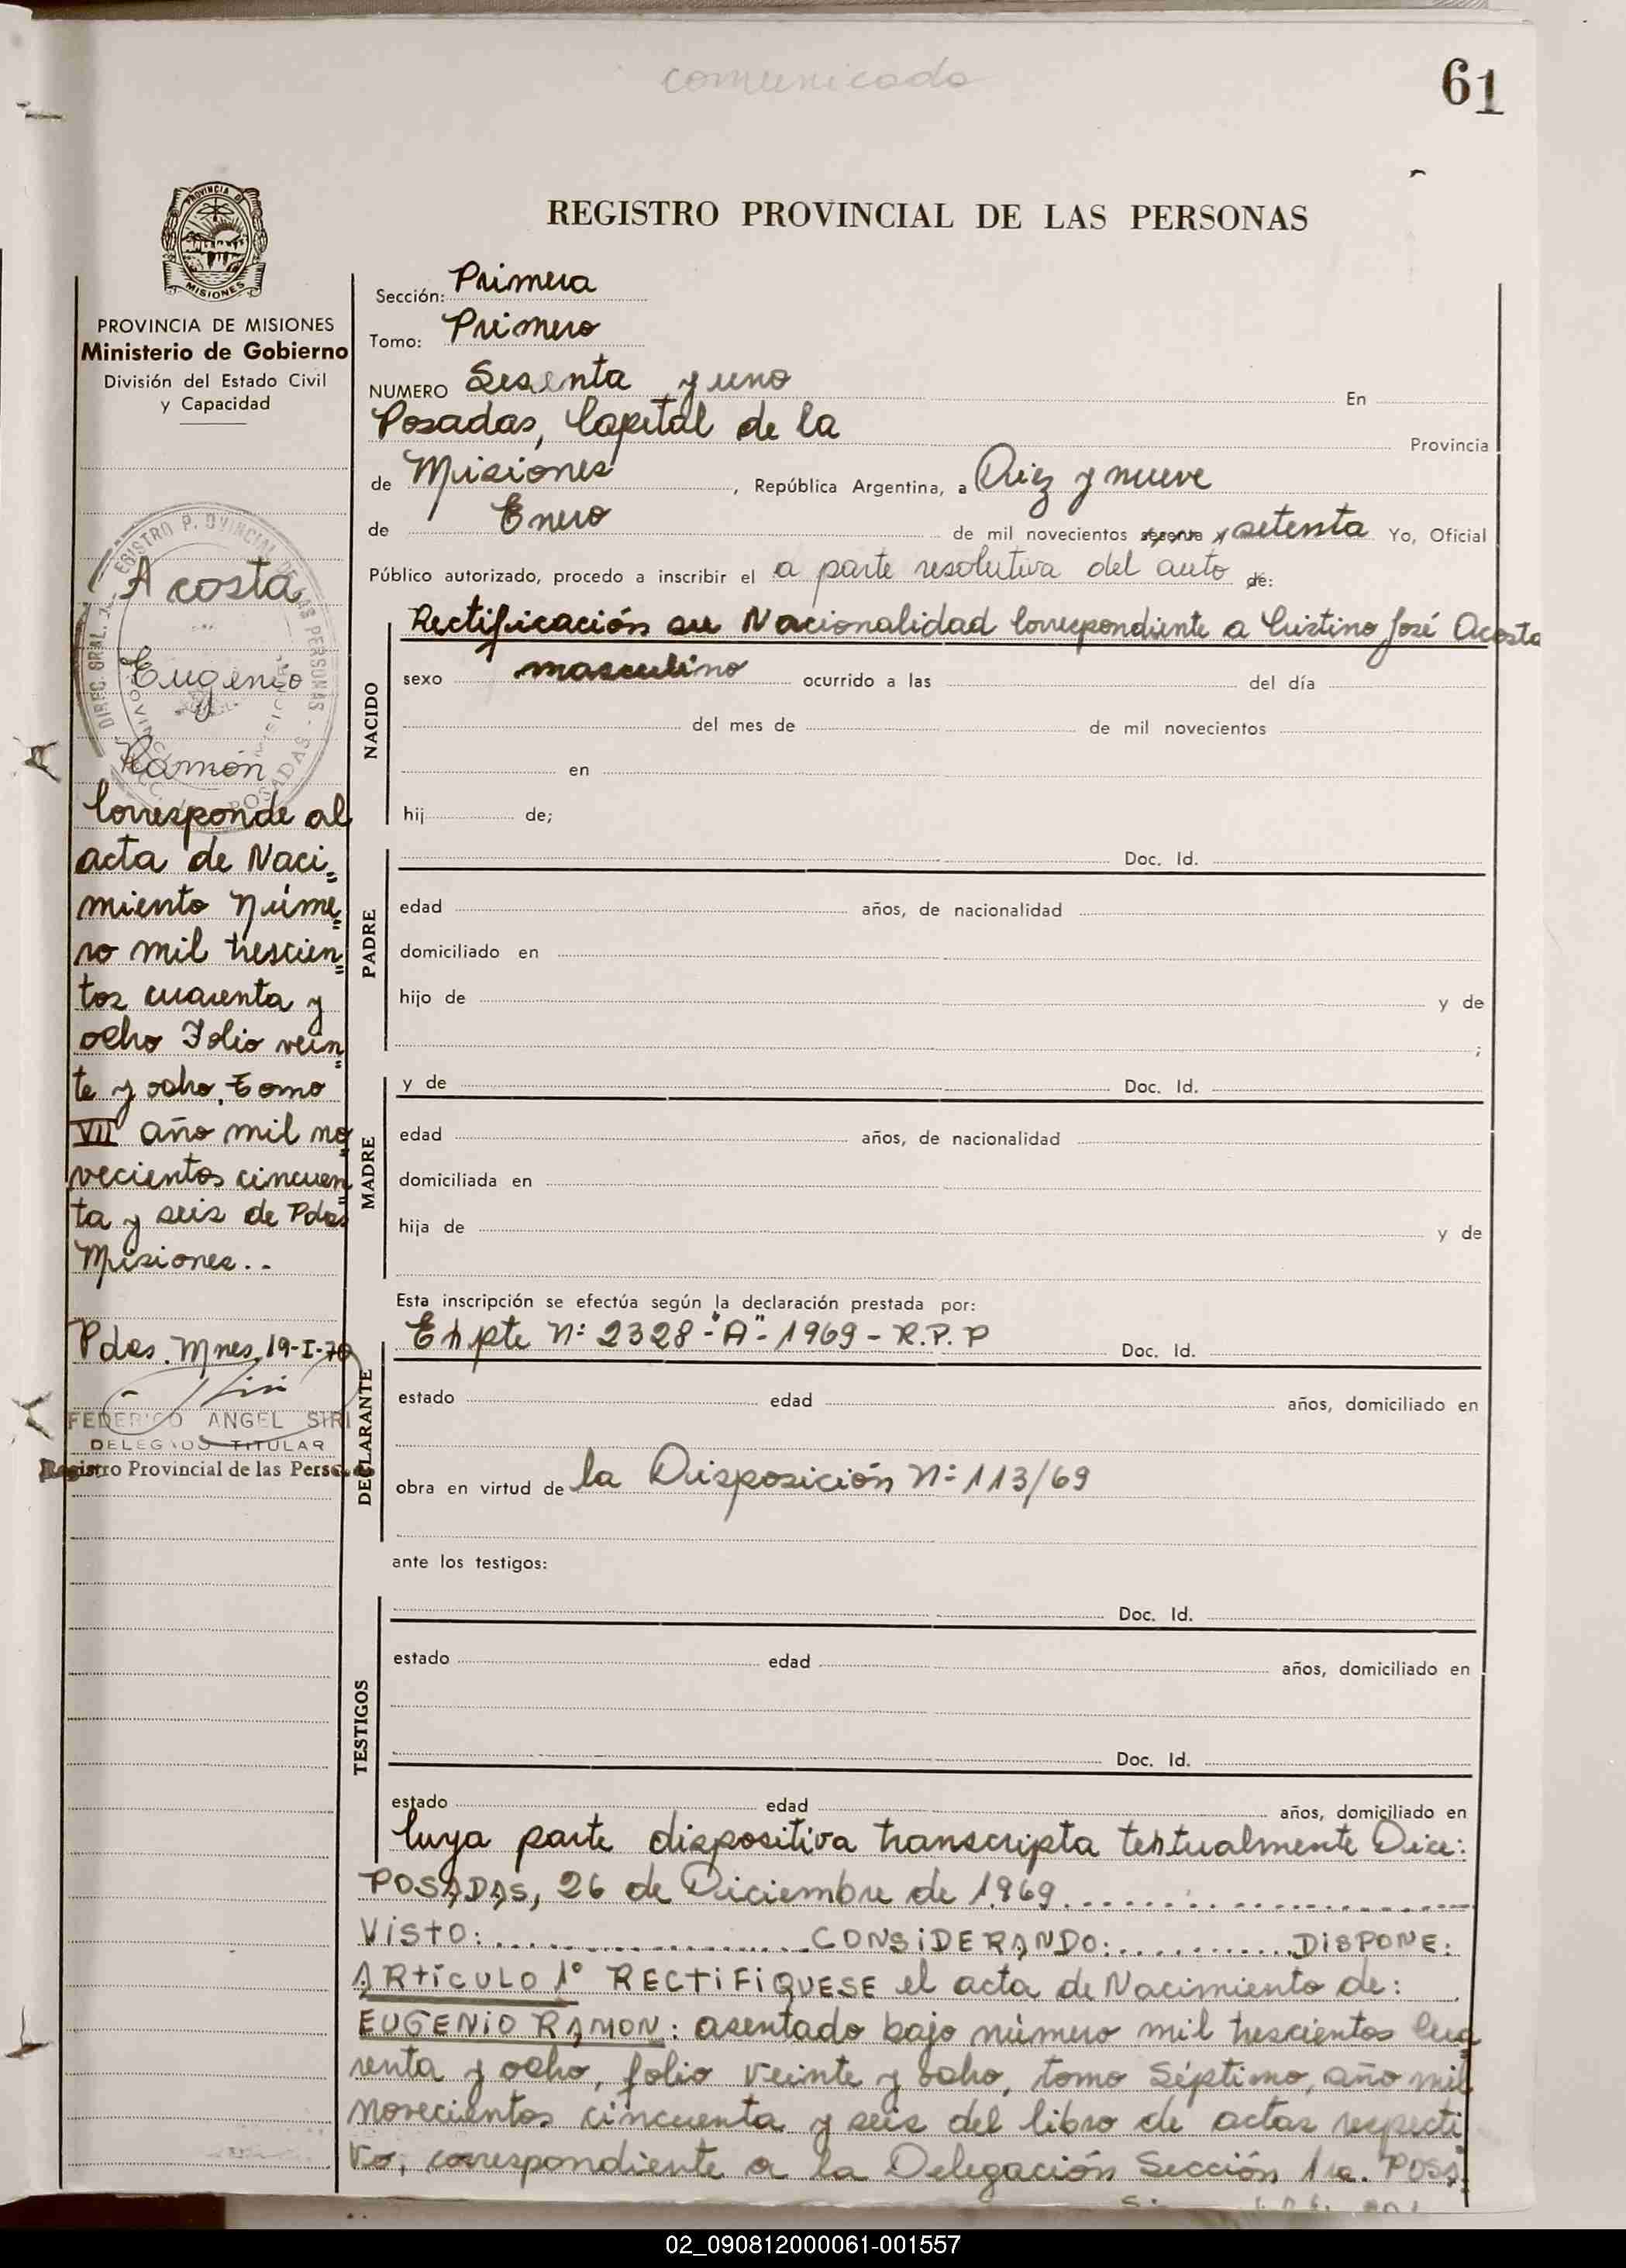 comunicado
61
PROVINCIA DE
MISIONES
REGISTRO PROVINCIAL DE LAS PERSONAS
PROVINCIA DE MISIONES
Ministerio de Gobierno
División del Estado Civil
y Capacidad
Acosta
Eugenio
Ramón
Corresponde al
acta de Naci=
miento Núme=
ro mil trescien=
tos cuarenta y
ocho Folio vein=
te y ocho, Tomo
VII año mil no=
vecientos cincuen=
ta y seis de Pdas
Misiones..
Pdas. Mnes, 19-I-70
FEDERICO ANGEL SIRI
DELEGADO TITULAR
Registro Provincial de las Personas
Sección: Primera
Tomo: Primero
NUMERO Sesenta y uno En
Posadas, Capital de la Provincia
de Misiones, República Argentina, a Diez y nueve
de Enero de mil novecientos sesenta y setenta Yo, Oficial
Público autorizado, procedo a inscribir el a parte resolutiva del auto de:
Rectificación su Nacionalidad Correspondiente a Cristino José Acosta
NACIDO
sexo masculino ocurrido a las del día
del mes de de mil novecientos
en
hij de;
Doc. Id.
PADRE
edad años, de nacionalidad
domiciliado en
hijo de y de
;
MADRE
y de Doc. Id.
edad años, de nacionalidad
domiciliada en
hija de y de
Esta inscripción se efectúa según la declaración prestada por:
DECLARANTE
Expte Nº 2328-"A"-1969-R.P.P Doc. Id.
estado edad años, domiciliado en
obra en virtud de la Disposición Nº 113/69
ante los testigos:
TESTIGOS
Doc. Id.
estado edad años, domiciliado en
Doc. Id.
estado edad años, domiciliado en
Cuya parte dispositiva transcripta textualmente Dice:
POSADAS, 26 de Diciembre de 1969
VISTO: CONSIDERANDO: DISPONE:
ARTÍCULO 1º RECTIFIQUESE el acta de Nacimiento de:
EUGENIO RAMON: asentado bajo número mil trescientos cua
renta y ocho, folio veinte y ocho, tomo Séptimo, año mil
novecientos cincuenta y seis del libro de actas respecti
vo, correspondiente a la Delegación Sección 1ra. POSA=
02_090812000061-001557